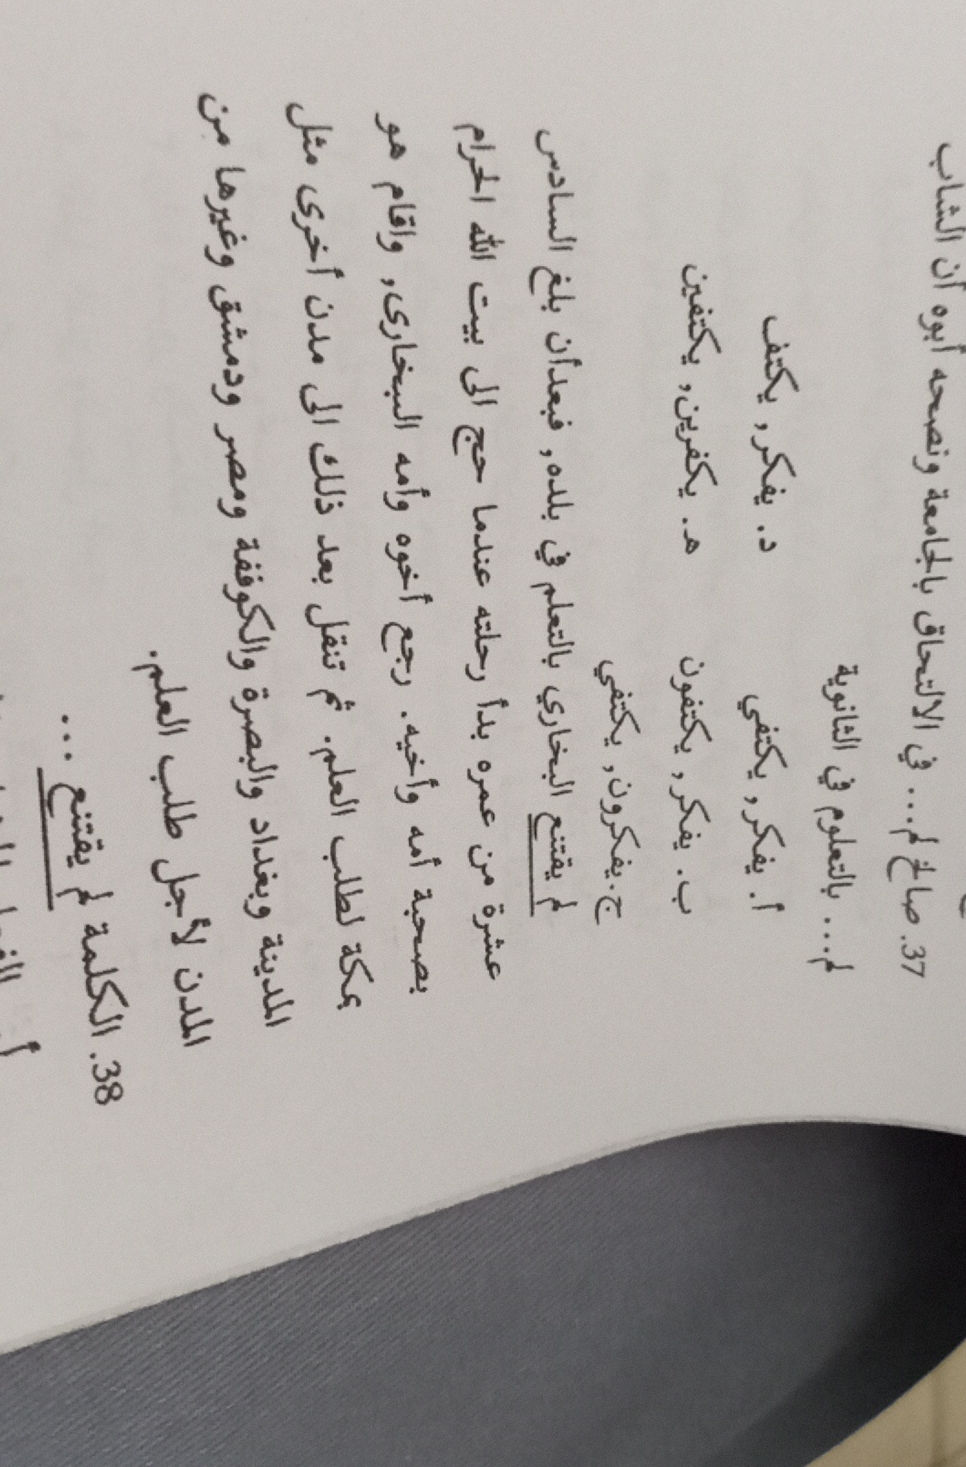 37. صالح لم... في الالتحاق بالجامعة ونصحه أبوه أن الشاب
لم... بالتعلوم في الثانوية
أ. يفكر, يكتفي د. يفكر, يكتف
ب. يفكر, يكتفون هـ. يكفرين, يكتفين
ج. يفكرون, يكتفي
لم يقتنع البخاري بالتعلم في بلده, فبعدأن بلغ السادس
عشرة من عمره بدأ رحلته عندما حج الى بيت الله الحرام
بصحبة أمه وأخيه. رجع أخوه وأمه البخارى, واقام هو
بمكة لطلب العلم. ثم تنقل بعد ذلك الى مدن أخرى مثل
المدينة وبغداد والبصرة والكوففة ومصر ودمشق وغيرها من
المدن لأجل طلب العلم.
38. الكلمة لم يقتنع ...